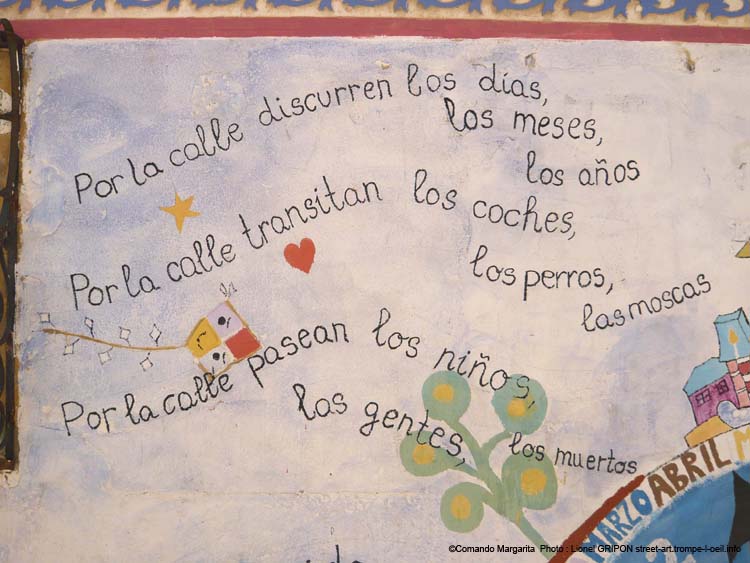 Por la calle discurren los días,
los meses,
los años
Por la calle transitan los coches,
los perros,
las moscas
Por la calle pasean los niños,
las gentes,
los muertos
MARZO ABRIL
©Comando Margarita Photo : Lionel GRIPON street-art.trompe-l-oeil.info